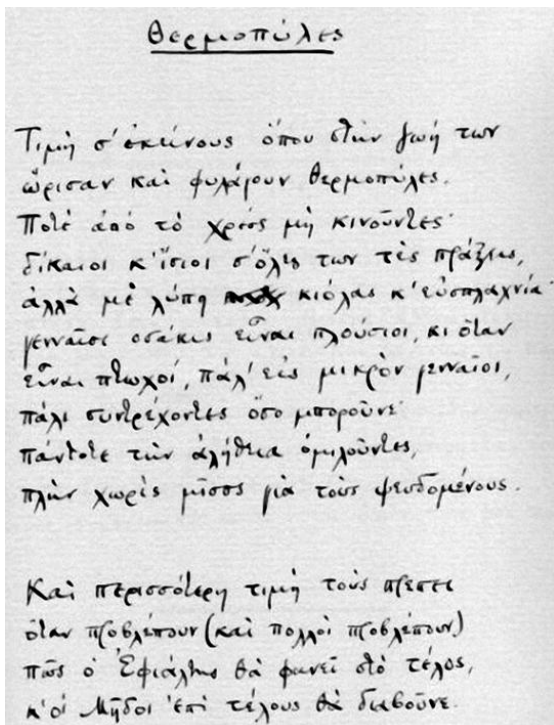 Θερμοπύλες
Τιμὴ σ' ἐκείνους ὅπου στὴν ζωή των
ὥρισαν καὶ φυλάγουν Θερμοπύλες.
Ποτὲ ἀπὸ τὸ χρέος μὴ κινοῦντες·
δίκαιοι κ' ἴσιοι σ' ὅλες των τὲς πράξεις,
ἀλλὰ μὲ λύπη κιόλας κ' εὐσπλαχνία·
γενναῖοι οσάκις εἶναι πλούσιοι, κι ὅταν
εἶναι πτωχοί, πάλ' εἰς μικρὸν γενναῖοι,
πάλι συντρέχοντες ὅσο μποροῦνε·
πάντοτε τὴν ἀλήθεια ὁμιλοῦντες,
πλὴν χωρὶς μῖσος γιὰ τοὺς ψευδομένους.
Καὶ περισσότερη τιμὴ τοὺς πρέπει
ὅταν προβλέπουν (καὶ πολλοὶ προβλέπουν)
πῶς ὁ Ἐφιάλτης θὰ φανεῖ στὸ τέλος,
κ' οἱ Μῆδοι ἐπὶ τέλους θὰ διαβοῦνε.